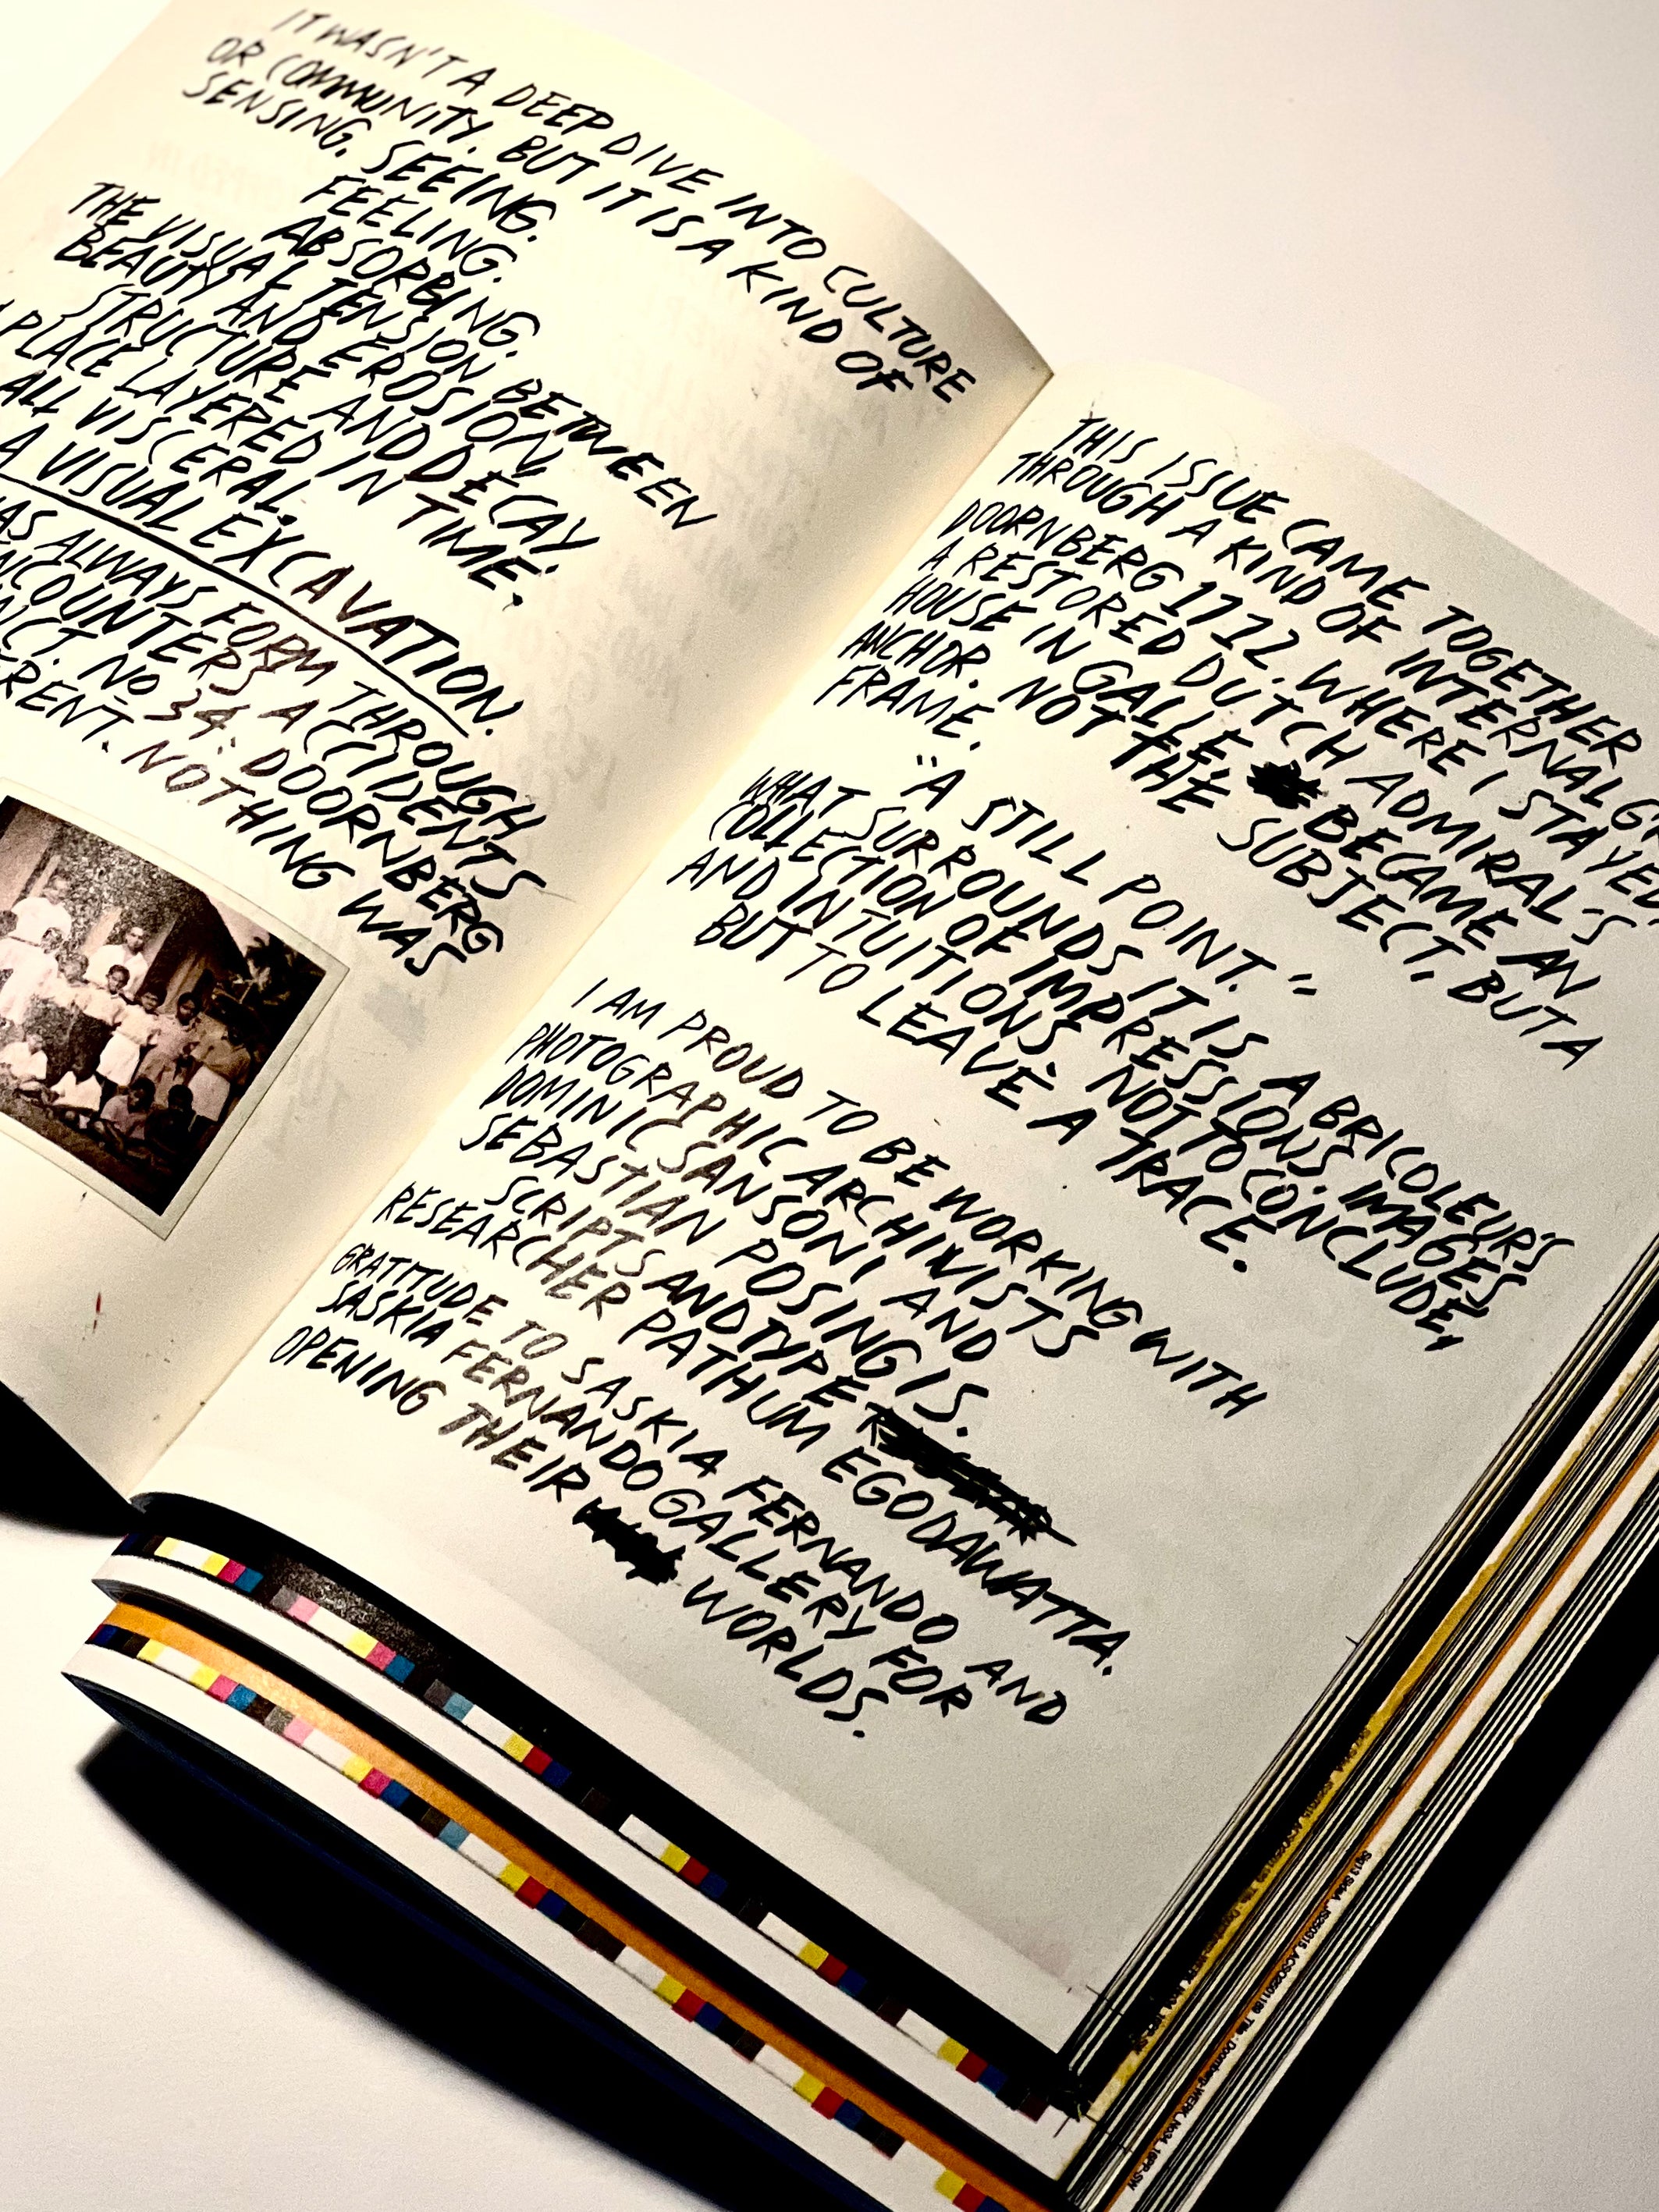 IT WASN'T A DEEP DIVE INTO CULTURE
OR COMMUNITY. BUT IT IS A KIND OF
SENSING. SEEING.
FEELING.
ABSORBING.
THE VISUAL TENSION BETWEEN
BEAUTY AND EROSION
STRUCTURE AND DECAY.
PLACE LAYERED IN TIME.
ALL VISCERAL.
A VISUAL EXCAVATION.
ALWAYS FORM THROUGH
ACCIDENTS
NO 34: DOORNBERG
NOTHING WAS
THIS ISSUE CAME TOGETHER
THROUGH A KIND OF INTERNAL
DOORNBERG 1712. WHERE I STAYED
A RESTORED DUTCH ADMIRAL'S
HOUSE IN GALLE. BECAME AN
ANCHOR. NOT THE SUBJECT. BUT A
FRAME.
"A STILL POINT."
WHAT SURROUNDS IT IS A BRICOLEUR'S
COLLECTION OF IMPRESSIONS. IMAGES
AND INTUITIONS. NOT TO CONCLUDE,
BUT TO LEAVE A TRACE.
I AM PROUD TO BE WORKING WITH
PHOTOGRAPHIC ARCHIVISTS
DOMINIC SANSONI AND
SEBASTIAN POSINGIS.
SCRIPTS AND TYPE
RESEARCHER PATHUM EGODAWATTA.
GRATITUDE TO SASKIA FERNANDO AND
SASKIA FERNANDO GALLERY FOR
OPENING THEIR WORLDS.